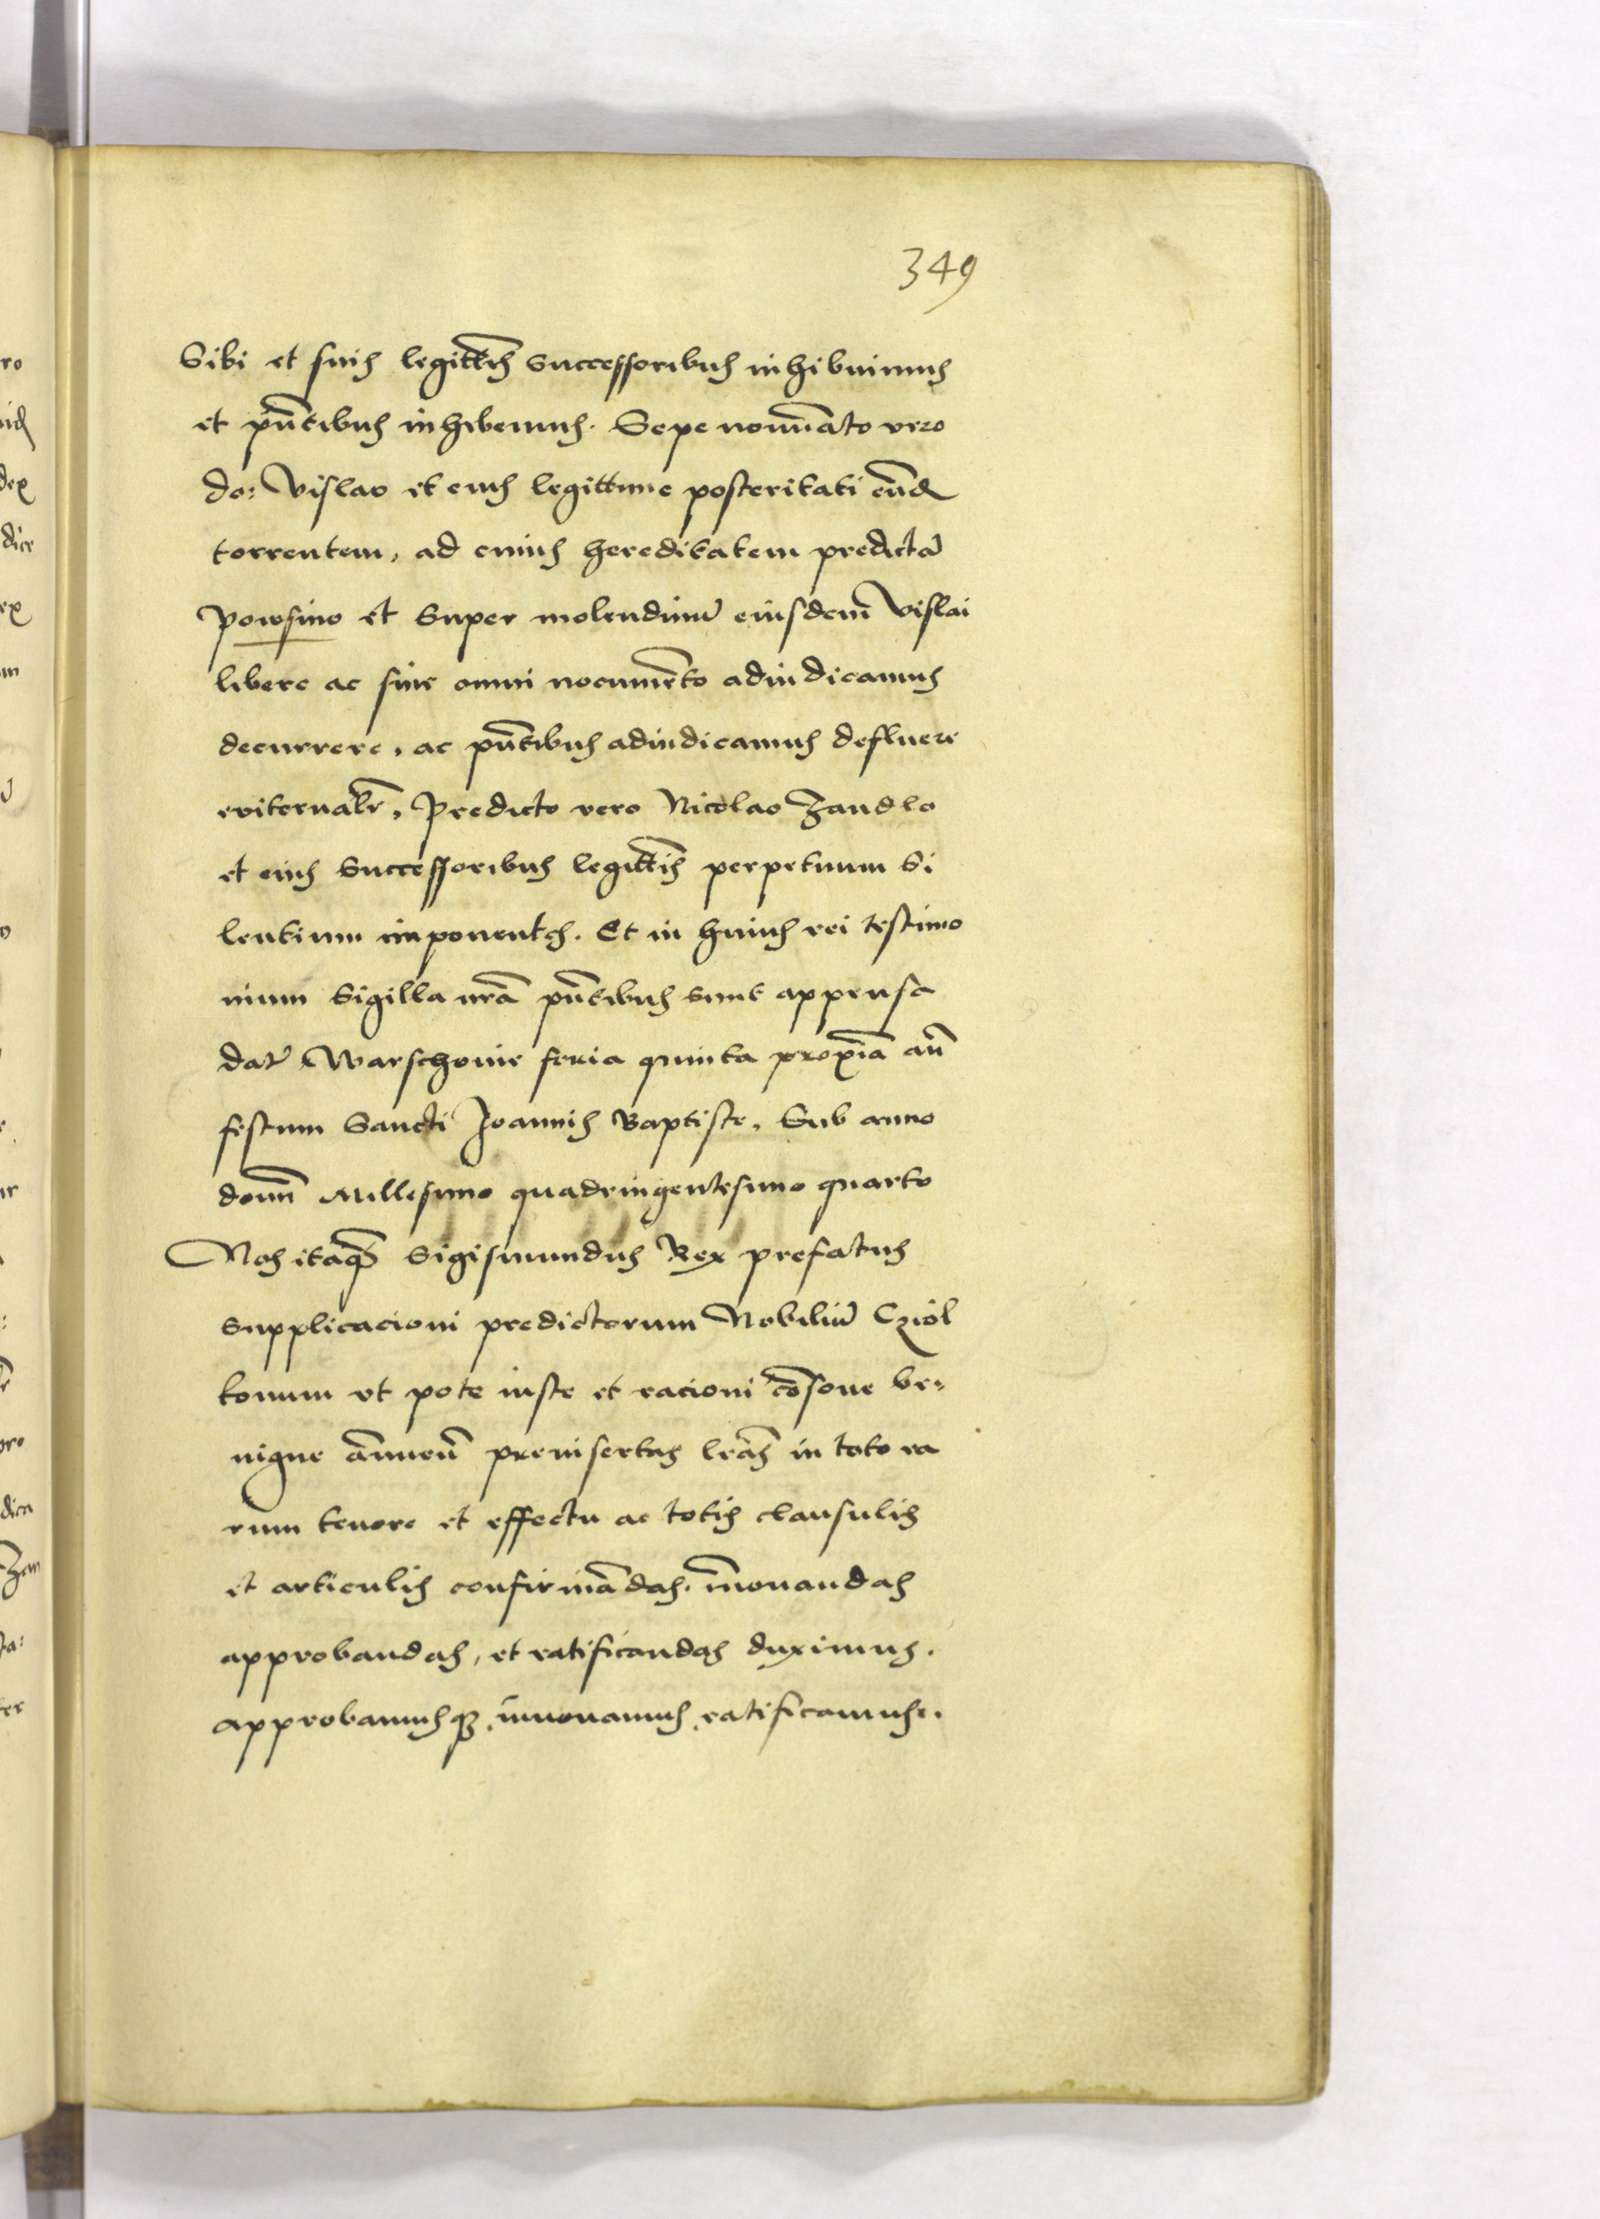 349
Sibi et suis legitti͠s Successoribus inhibuimus
et pn͠tibus inhibemus. Sepe nomi͠ato vero
do: Vislao et eius legittime posteritati eun͠d
torrentem, ad eius hereditatem predictā
Powsino et Super molendinu͠ eiusdem Vislai
libere ac sine omni nocume͠to adiudicamus
decurrere, ac pn͠tibus adiudicamus defluere
eviternalr͠, Predicto vero Nicolao Zandlo
et eius Successoribus legitti͠s perpetuum Si
lentium imponentes. Et in huius rei testimo
nium Sigilla nr͠a pn͠tibus sunt appensa
dat͠ Warschovie feria quinta proxi͠a an͠
festum Sancti Joannis Baptiste, Sub anno
domi͠ Millesimo quadringentesimo quarto
Nos itaq͠ Sigismundus Rex prefatus
Supplicacioni predictorum Nobiliu͠ Cziol
konum ut pote iuste et racioni co͠sone be=
nigne an͠nuen͠ preinsertas lr͠as in toto ea
rum tenore et effectu ac totis clausulis
et articulis confirma͠das. in͠novandas
approbandas, et ratificandas duximus.
approbamusq₃, innovamus, ratificamus.